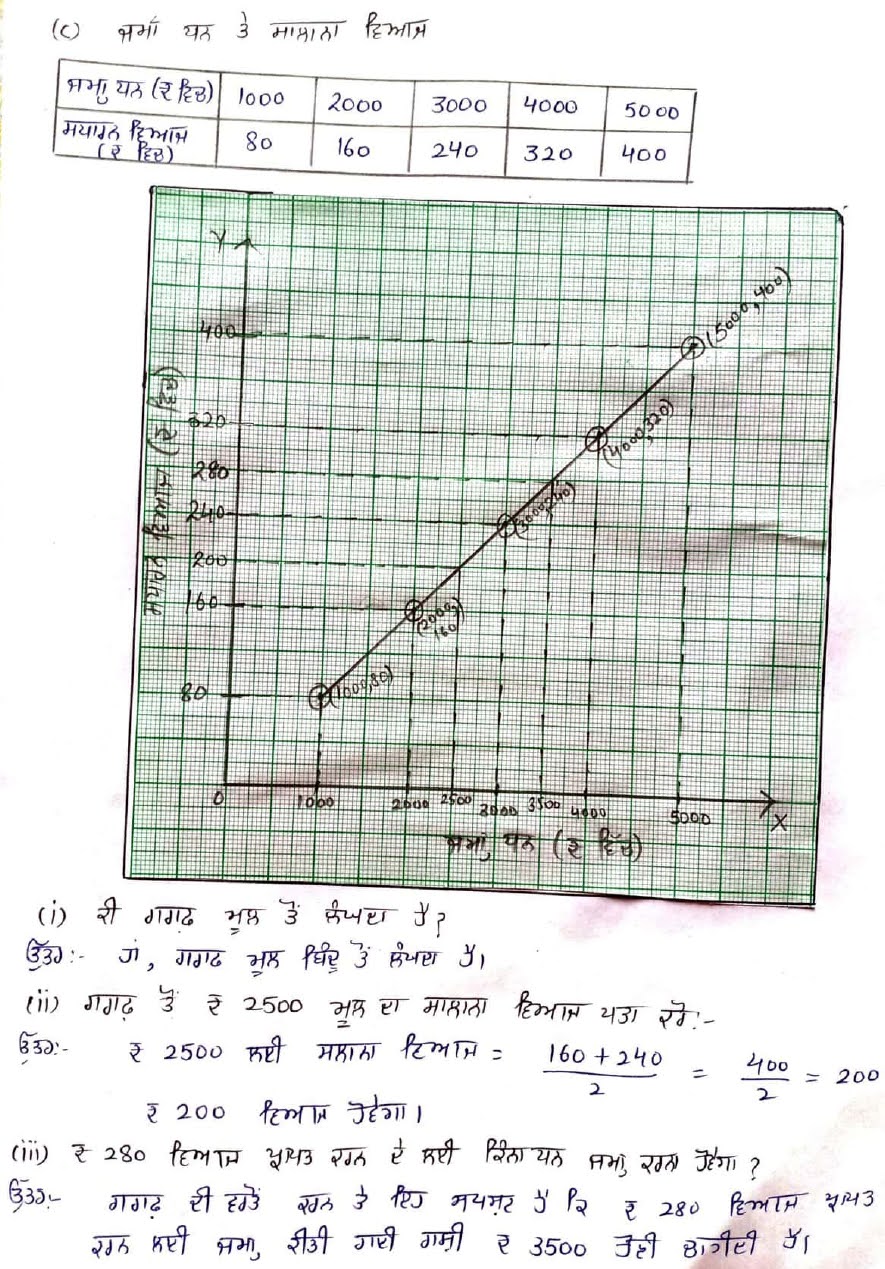 (c) ਜਮਾਂ ਧਨ ਤੇ ਸਾਲਾਨਾ ਵਿਆਜ
ਜਮਾਂ ਧਨ (₹ ਵਿਚ) 1000 2000 3000 4000 5000
ਸਧਾਰਨ ਵਿਆਜ 80 160 240 320 400
(₹ ਵਿਚ)
Y
(5000,400)
400
(4000,320)
320
280
(3000,240)
240
200
(2000,
160)
160
(1000,80)
80
ਸਧਾਰਨ ਵਿਆਜ (₹ ਵਿਚ)
0 1000 2000 2500 3000 3500 4000 5000 X
ਜਮਾਂ ਧਨ (₹ ਵਿੱਚ)
(i) ਕੀ ਗਰਾਫ਼ ਮੂਲ ਤੋਂ ਲੰਘਦਾ ਹੈ?
ਉੱਤਰ:- ਹਾਂ, ਗਰਾਫ ਮੂਲ ਬਿੰਦੂ ਤੋਂ ਲੰਘਦਾ ਹੈ।
(ii) ਗਰਾਫ਼ ਤੋਂ ₹ 2500 ਮੂਲ ਦਾ ਸਾਲਾਨਾ ਵਿਆਜ ਪਤਾ ਕਰੋ:-
ਉੱਤਰ:- ₹ 2500 ਲਈ ਸਲਾਨਾ ਵਿਆਜ = 160 + 240 / 2 = 400 / 2 = 200
₹ 200 ਵਿਆਜ ਹੋਵੇਗਾ।
(iii) ₹ 280 ਵਿਆਜ ਪ੍ਰਾਪਤ ਕਰਨ ਦੇ ਲਈ ਕਿੰਨਾ ਧਨ ਜਮਾਂ ਕਰਨਾ ਹੋਵੇਗਾ?
ਉੱਤਰ:- ਗਰਾਫ਼ ਦੀ ਵਰਤੋਂ ਕਰਨ ਤੇ ਇਹ ਸਪਸ਼ਟ ਹੈ ਕਿ ₹ 280 ਵਿਆਜ ਪ੍ਰਾਪਤ
ਕਰਨ ਲਈ ਜਮਾਂ ਕੀਤੀ ਗਈ ਰਾਸ਼ੀ ₹ 3500 ਹੋਣੀ ਚਾਹੀਦੀ ਹੈ।